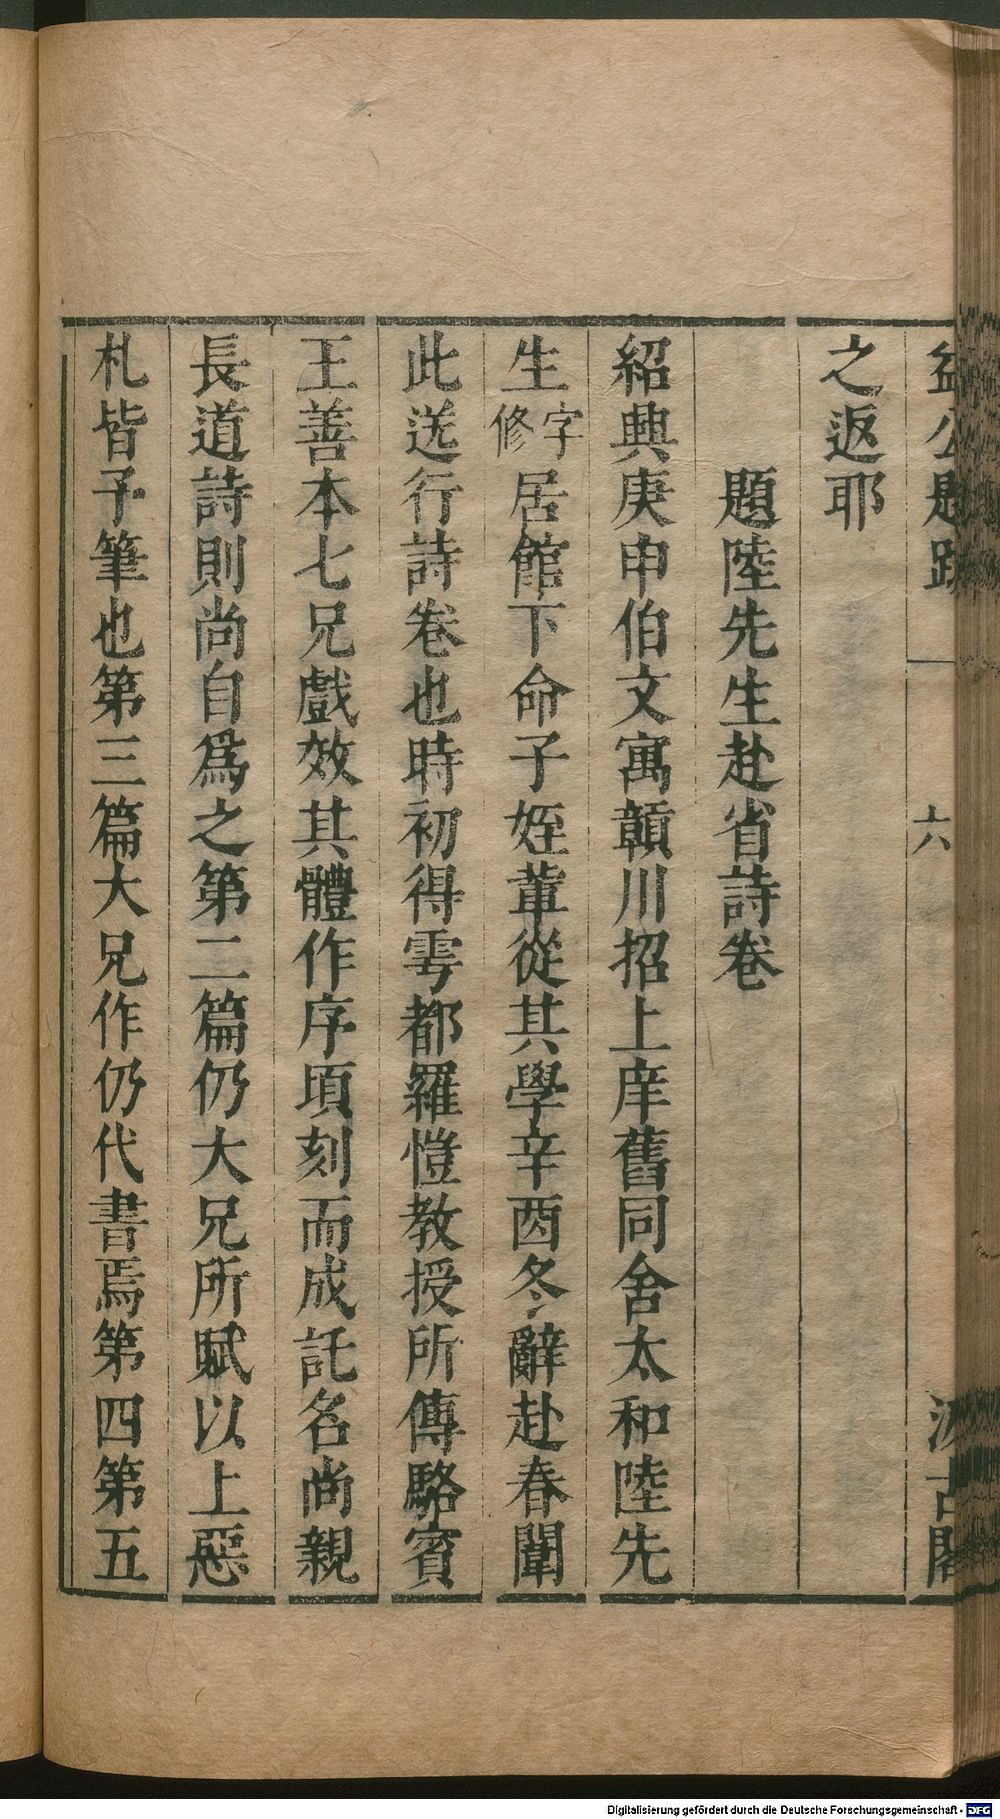 益公題跋 六 汲古閣
之返耶
題陸先生赴省詩卷
紹興庚申伯文寓贛川招上庠舊同舍太和陸先
生字修居館下命子姪輩從其學辛酉冬辭赴春闈
此送行詩卷也時初得雩都羅愷教授所傳駱賓
王善本七兄戲效其體作序頃刻而成託名尚親
長道詩則尚自爲之第二篇仍大兄所賦以上惡
札皆予筆也第三篇大兄作仍代書焉第四第五
Digitalisierung gefördert durch die Deutsche Forschungsgemeinschaft - DFG